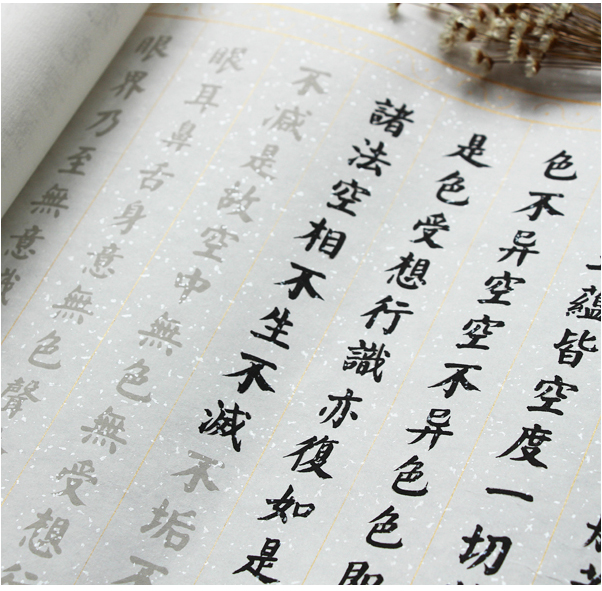 蘊皆空度一切
色不异空空不异色色即
是色受想行識亦復如是
諸法空相不生不滅不垢不
不減是故空中無色無受想行
眼耳鼻舌身意無色聲
眼界乃至無意識